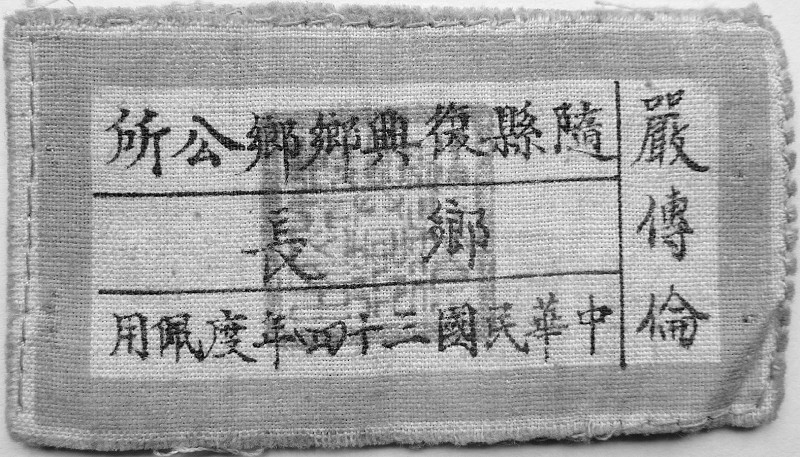 嚴傳倫
隨縣復興鄉鄉公所
鄉長
中華民國三十四年度佩用